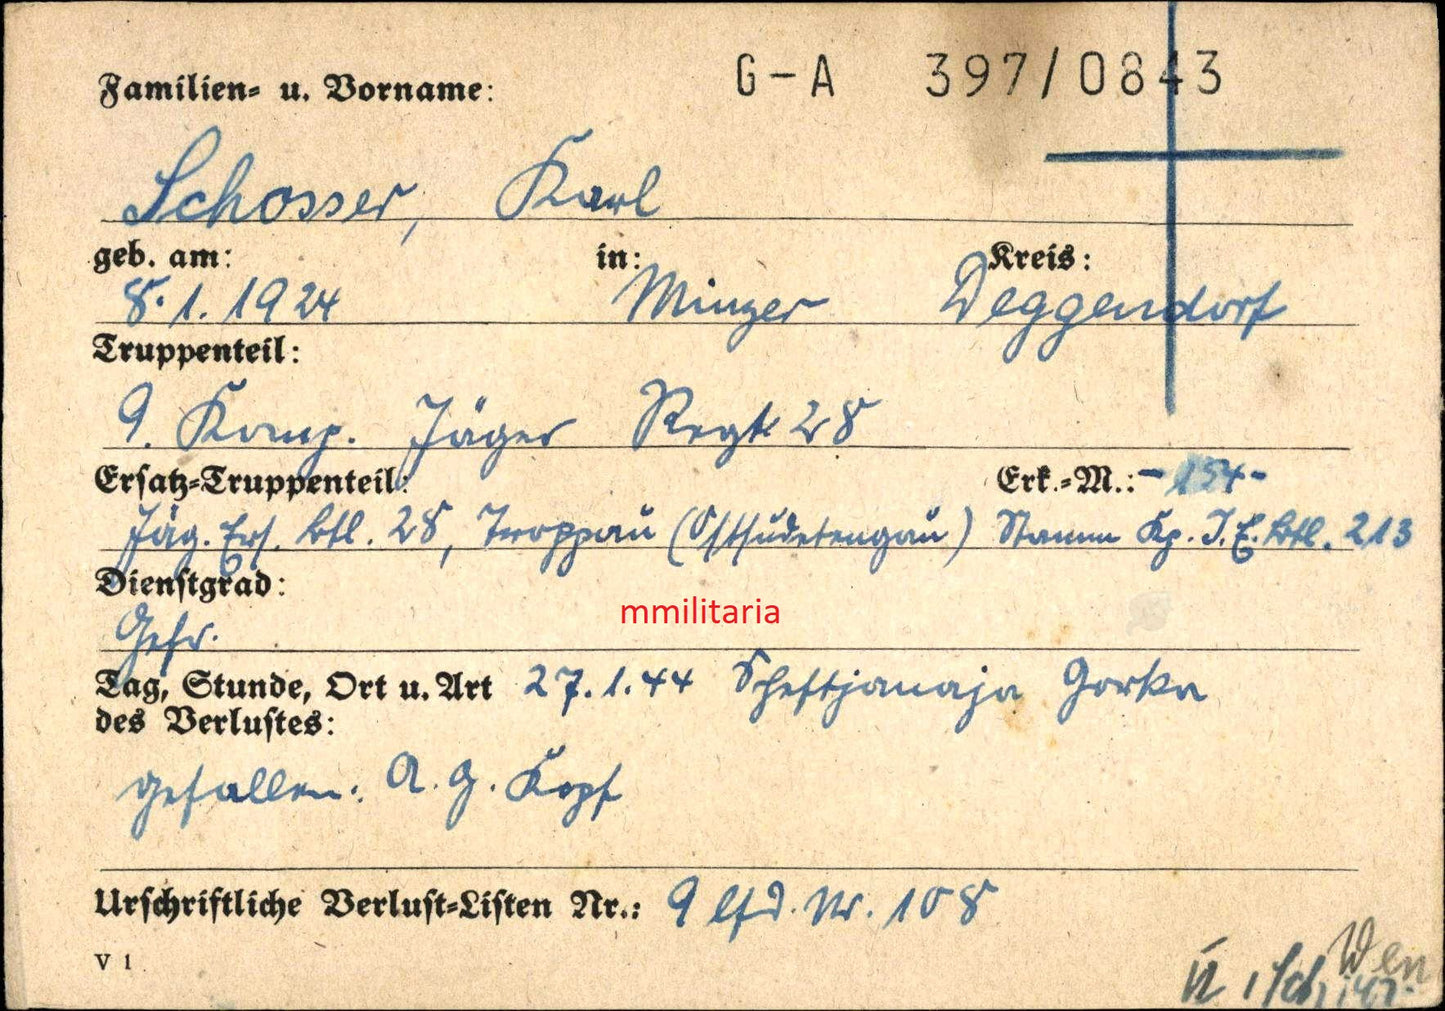 G-A 397/0843
Familien- u. Vorname:
Schosser, Karl
geb. am: in: Kreis:
8.1.1924 Winzer Deggendorf
Truppenteil:
9. Komp. Jäger Regt. 28
Ersatz-Truppenteil: Erk.-M.: -154-
Jäg. Ers. Btl. 28, Troppau (Ostsudetengau) Stamm Kp. J. E. Btl. 213
Dienstgrad:
Gefr.
mmilitaria
Tag, Stunde, Ort u. Art 27.1.44 Scheftjanaja Gorka
des Verlustes:
gefallen: A. G. Kopf
Urschriftliche Verlust-Listen Nr.: 9 lfd. Nr. 108
V 1